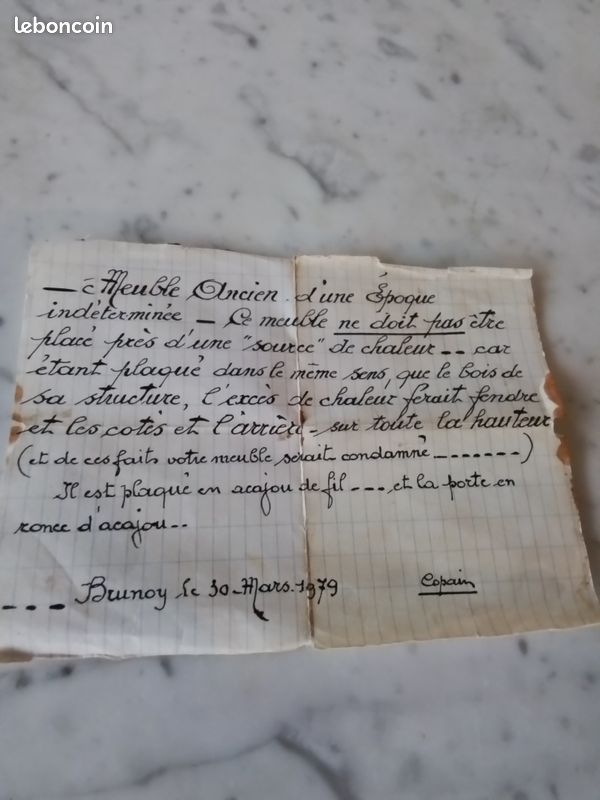 leboncoin
— c Meuble Ancien d'une Époque
indéterminée — Ce meuble ne doit pas être
placé près d'une "source" de chaleur -- car
étant plaqué dans le même sens, que le bois de
sa structure, l'excès de chaleur ferait fendre
et les cotés et l'arrière - sur toute la hauteur
(et de ces faits votre meuble serait condamné -------)
Il est plaqué en acajou de fil --- et la porte en
ronce d'acajou..
--- Brunoy le 30-Mars-1979 Copain